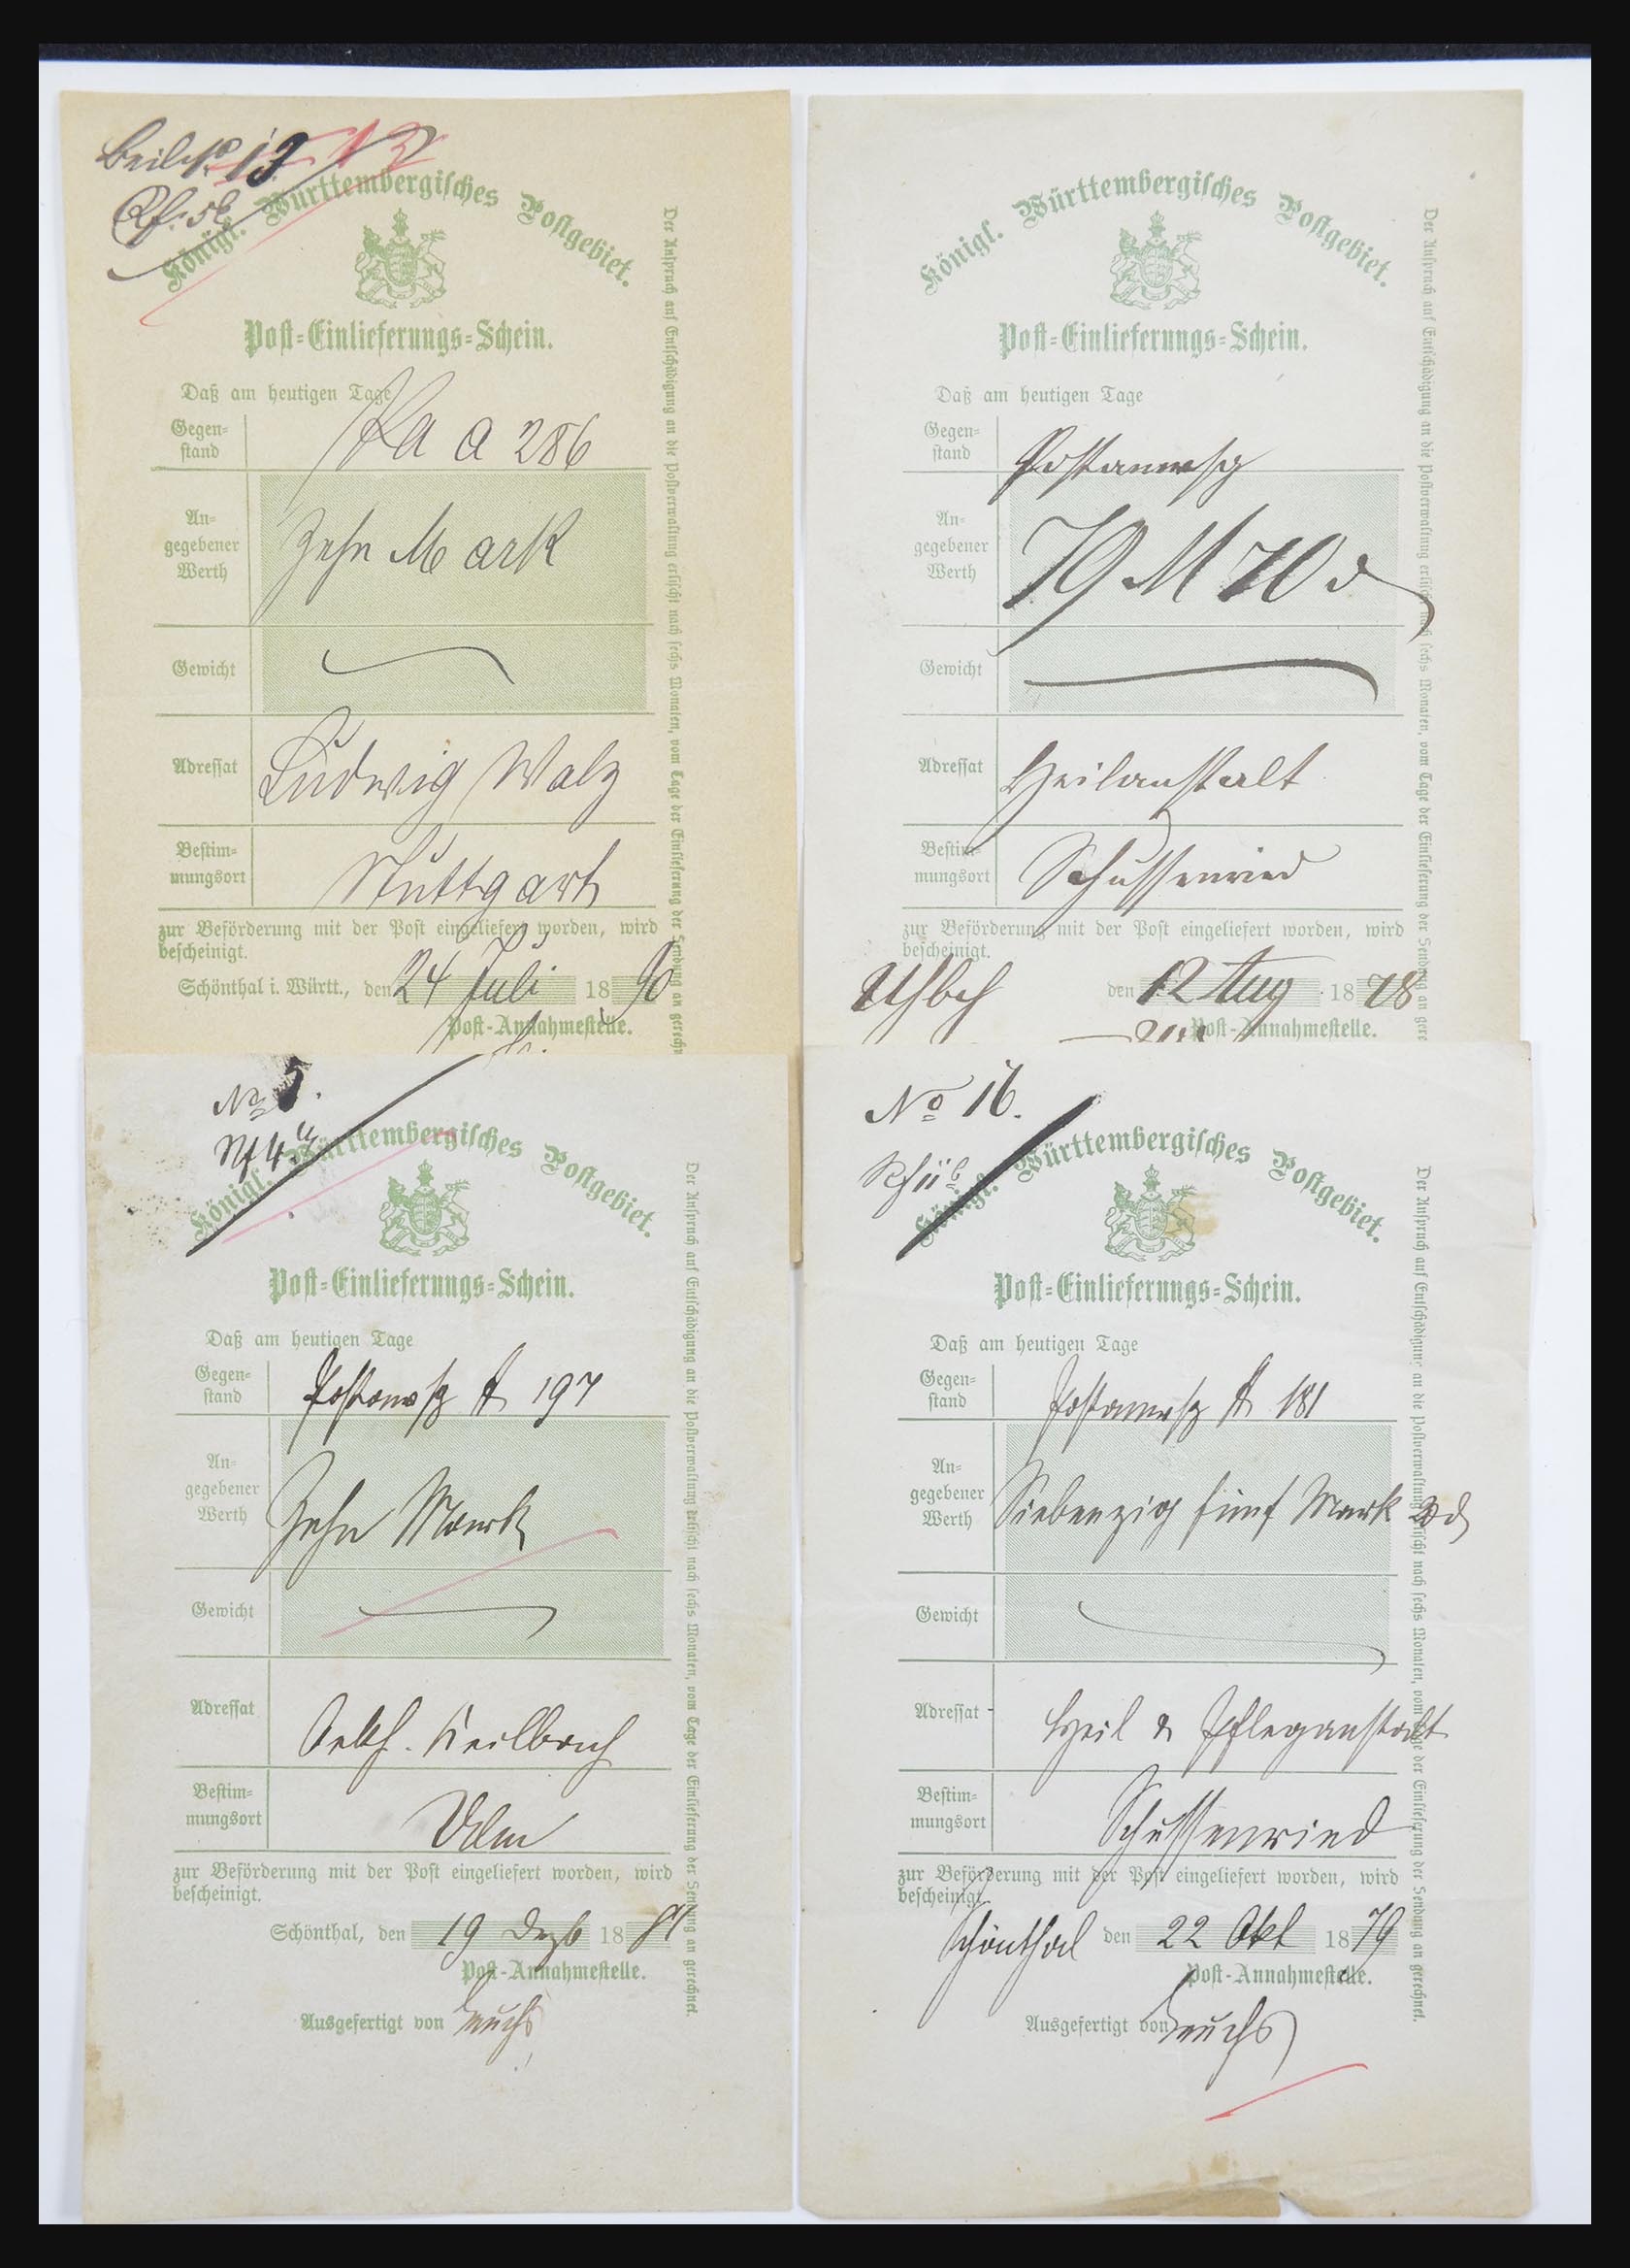 Beil. No. 13 13
Königl. Württembergisches Postgebiet.
Post=Einlieferungs=Schein.
Daß am heutigen Tage
Gegen=
stand
Pa a 286
An=
gegebener
Werth
Zehn Mark
Gewicht
Adressat
Ludwig Walz
Bestim=
mungsort
Stuttgart
zur Beförderung mit der Post eingeliefert worden, wird
bescheinigt.
Schönthal i. Württ., den 24 Juli 1890
Post-Annahmestelle.
Der Anspruch auf Entschädigung an die Postverwaltung erlischt nach sechs Monaten, vom Tage der Einlieferung der Sendung an gerechn
Königl. Württembergisches Postgebiet.
Post=Einlieferungs=Schein.
Daß am heutigen Tage
Gegen=
stand
Postanwsg
An=
gegebener
Werth
79 M 70 d
Gewicht
Adressat
Heilanstalt
Bestim=
mungsort
Schussenried
zur Beförderung mit der Post eingeliefert worden, wird
bescheinigt.
den 12 Aug 1878
Post-Annahmestelle.
Der Anspruch auf Entschädigung an die Postverwaltung erlischt nach sechs Monaten, vom Tage der Einlieferung der Sendung an gere
No 5.
Königl. Württembergisches Postgebiet.
Post=Einlieferungs=Schein.
Daß am heutigen Tage
Gegen=
stand
Postanwsg A 197
An=
gegebener
Werth
Zehn Mark
Gewicht
Adressat
Keilbach
Bestim=
mungsort
Ulm
zur Beförderung mit der Post eingeliefert worden, wird
bescheinigt.
Schönthal, den 19 Dezb 1881
Post-Annahmestelle.
Ausgefertigt von
Der Anspruch auf Entschädigung an die Postverwaltung erlischt nach sechs Monaten, vom Tage der Einlieferung der Sendung an gerechnet.
No 16.
Königl. Württembergisches Postgebiet.
Post=Einlieferungs=Schein.
Daß am heutigen Tage
Gegen=
stand
Postanwsg A 181
An=
gegebener
Werth
Siebenzig fünf Mark
Gewicht
Adressat
Heil & Pfleganstalt
Bestim=
mungsort
Schussenried
zur Beförderung mit der Post eingeliefert worden, wird
bescheinigt.
Schönthal den 22 Okt 1879
Post-Annahmestelle.
Ausgefertigt von
Der Anspruch auf Entschädigung an die Postverwaltung erlischt nach sechs Monaten, vom Tage der Einlieferung der Sendung an gerechnet.